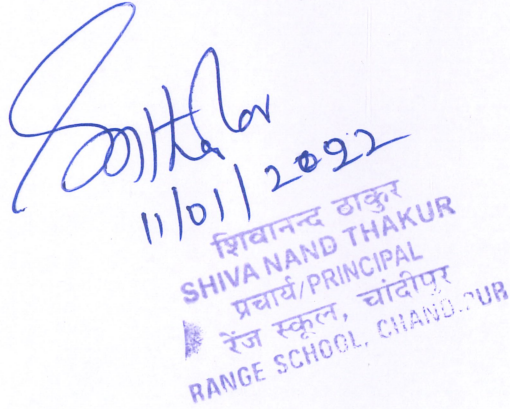 SNThakur
11/01/2022
शिवानन्द ठाकुर
SHIVA NAND THAKUR
प्रचार्य/PRINCIPAL
रेंज स्कूल, चांदीपुर
RANGE SCHOOL, CHANDIPUR